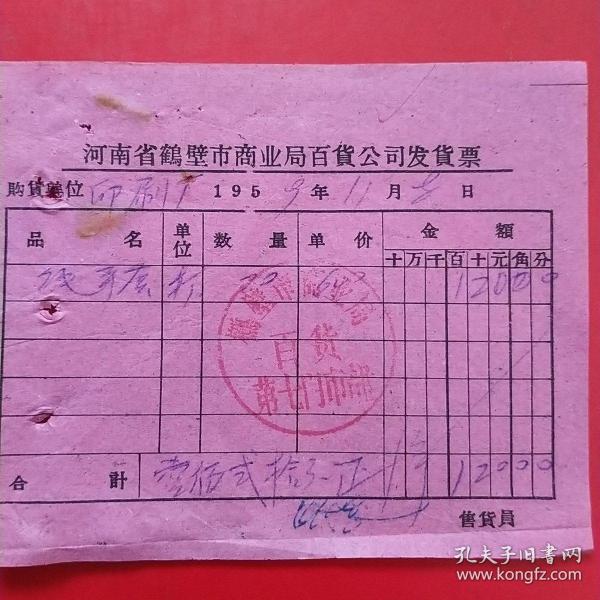 河南省鶴壁市商业局百貨公司发貨票
購貨單位 印刷厂 1959年11月8日
品名 单位 数量 单价 金額
十万千百十元角分
20 6.00 12000
鶴壁市商业局
百货
第七门市部
合計 壹佰弍拾元正 12000
售貨員
孔夫子旧书网
www.kongfz.com